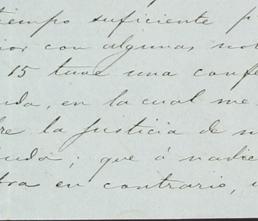 tiempo suficiente p
ior con algunas not
15 tuve una confe
da, en la cual me
re la justicia de n
uda; que á nadie
tra en contrario,